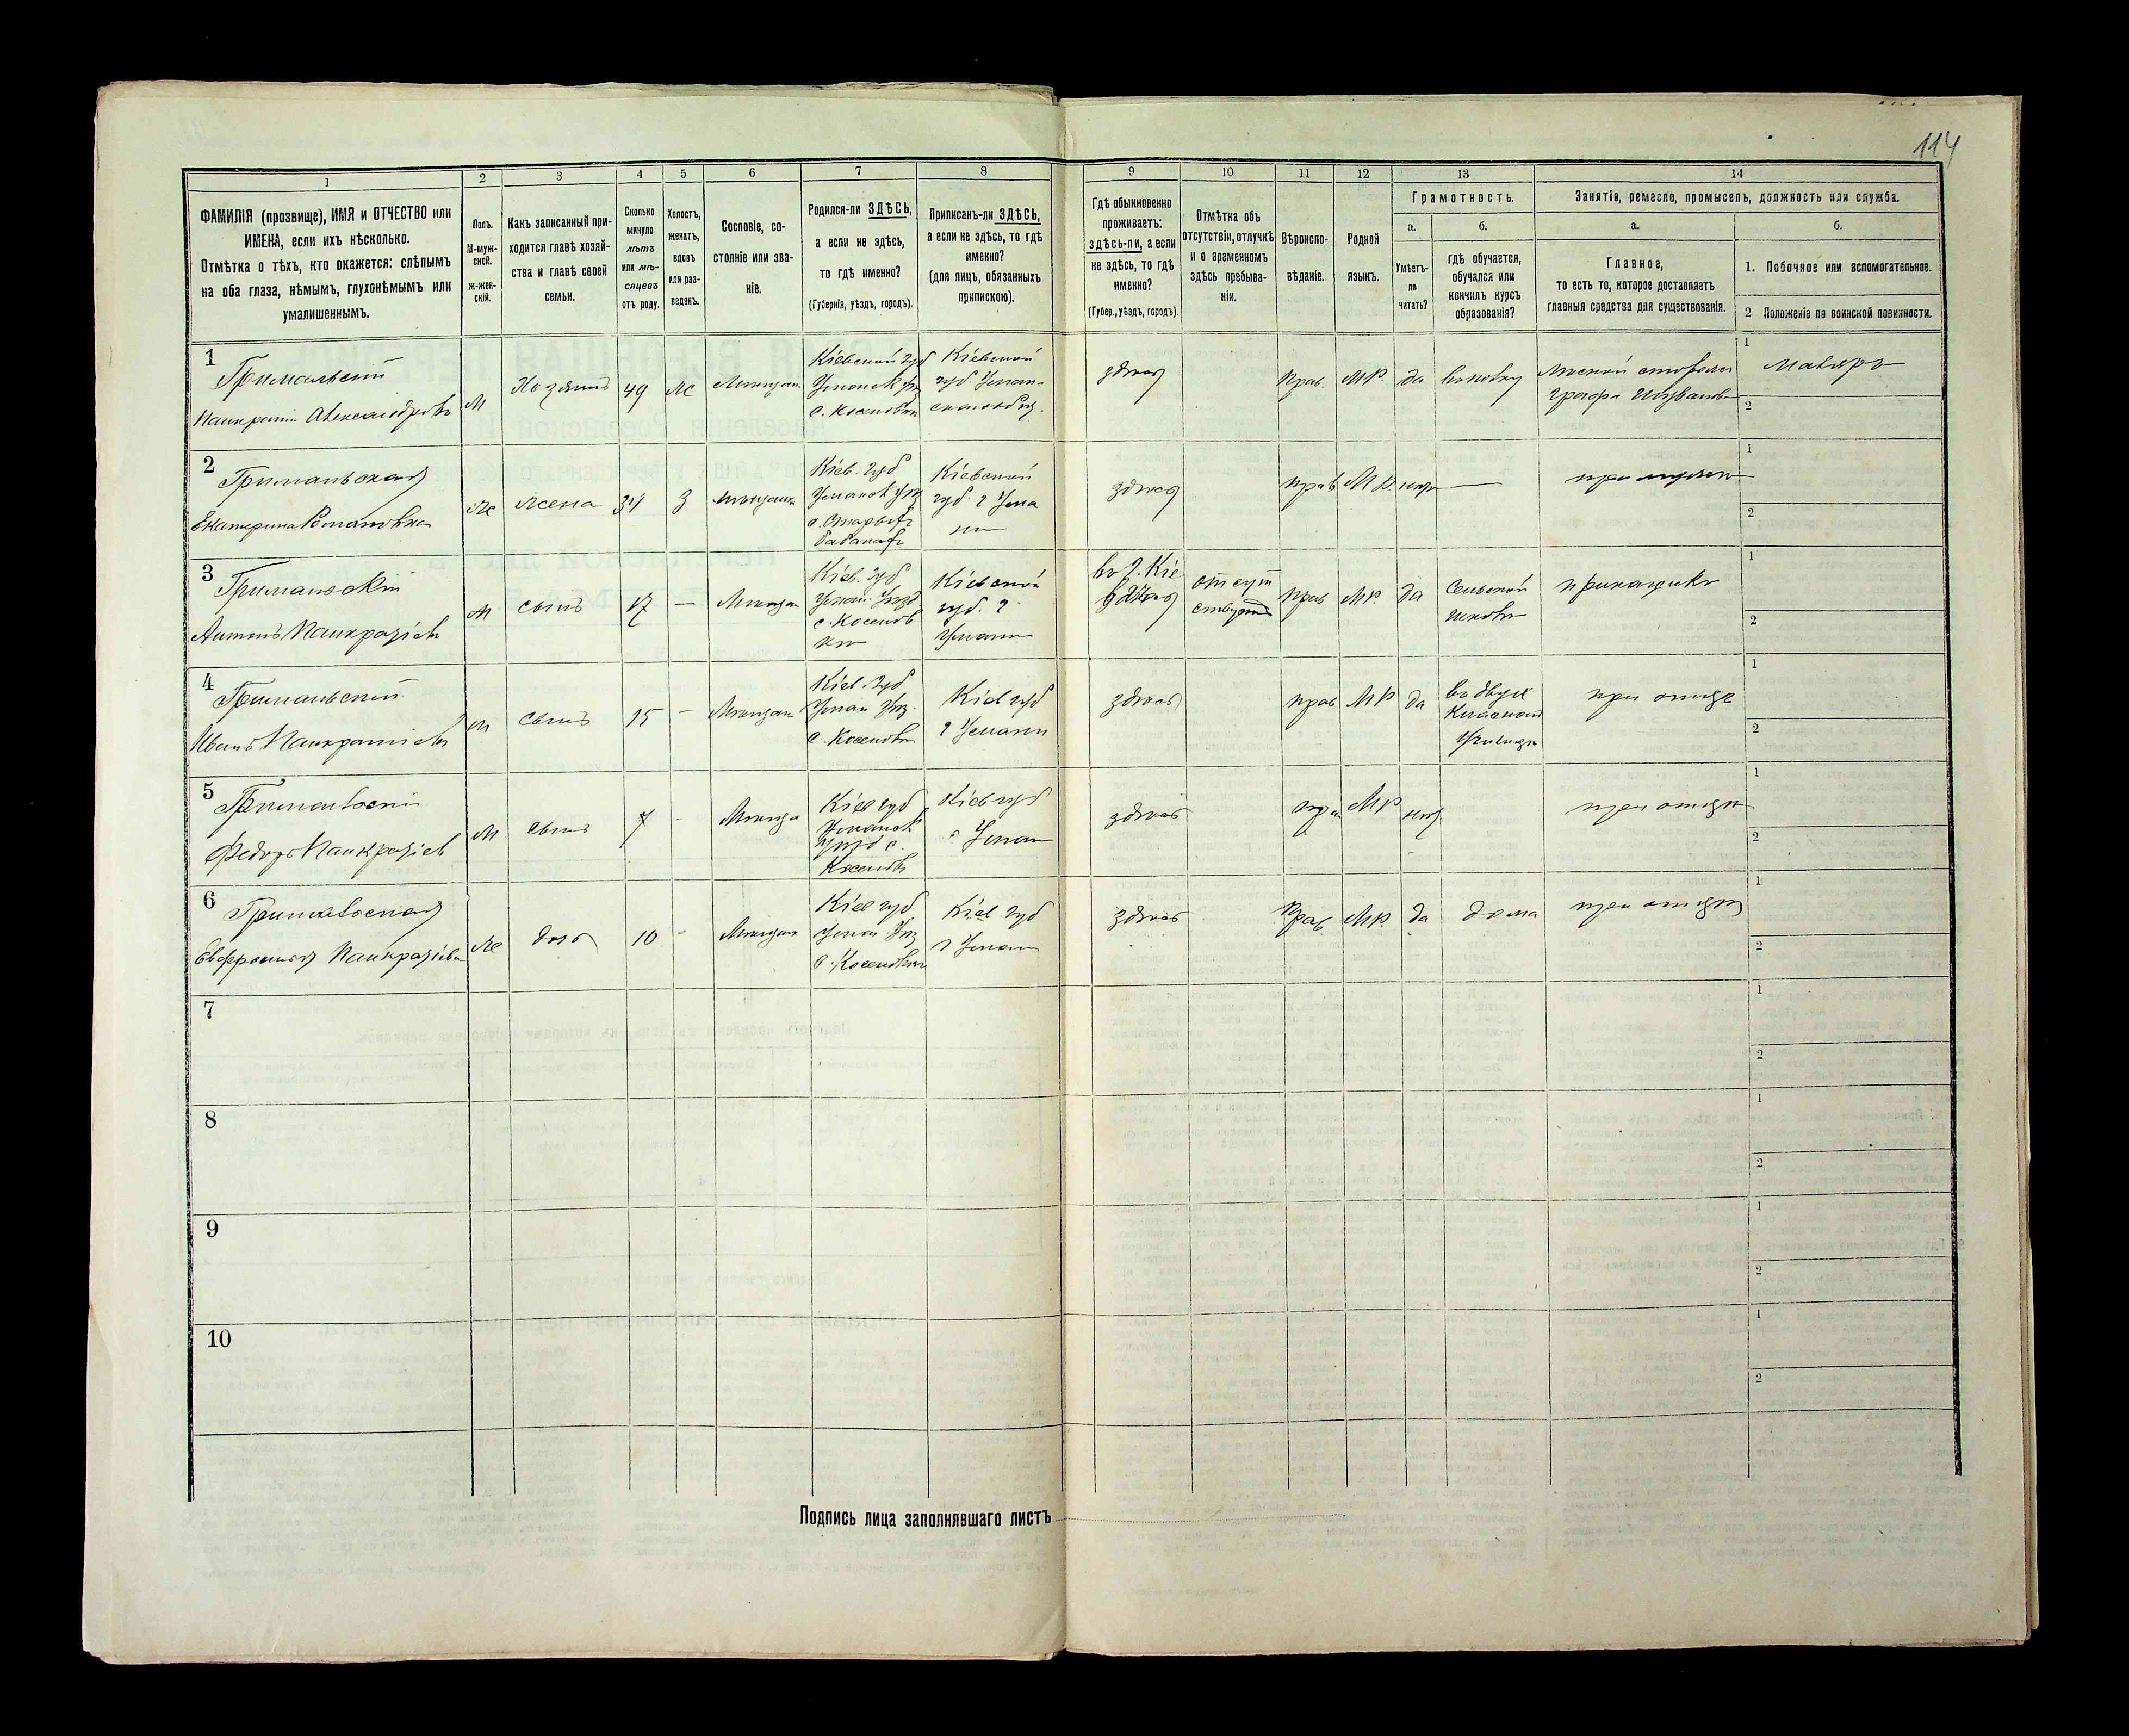 114
1
2
3
4
5
6
7
8
9
10
11
12
13
14
ФАМИЛІЯ (прозвище), ИМЯ и ОТЧЕСТВО или
ИМЕНА, если ихъ нѣсколько.
Отмѣтка о тѣхъ, кто окажется: слѣпымъ
на оба глаза, нѣмымъ, глухонѣмымъ или
умалишеннымъ.
Полъ.
М-муж-
ской.
Ж-жен-
скій.
Какъ записанный при-
ходится главѣ хозяй-
ства и главѣ своей
семьи.
Сколько
минуло
лѣтъ
или мѣ-
сяцевъ
отъ роду.
Холостъ,
женатъ,
вдовъ
или раз-
веденъ.
Сословіе, со-
стояніе или зва-
ніе.
Родился-ли ЗДѢСЬ,
а если не здѣсь,
то гдѣ именно?
(Губернія, уѣздъ, городъ).
Приписанъ-ли ЗДѢСЬ,
а если не здѣсь, то гдѣ
именно?
(для лицъ, обязанныхъ
припискою).
Гдѣ обыкновенно
проживаетъ:
здѣсь-ли, а если
не здѣсь, то гдѣ
именно?
(Губер., уѣздъ, городъ).
Отмѣтка объ
отсутствіи, отлучкѣ
и о временномъ
здѣсь пребыва-
ніи.
Вѣроиспо-
вѣданіе.
Родной
языкъ.
Грамотность.
а.
Умѣетъ-
ли
читать?
б.
гдѣ обучается,
обучался или
кончилъ курсъ
образованія?
Занятіе, ремесло, промыселъ, должность или служба.
а.
Главное,
то есть то, которое доставляетъ
главныя средства для существованія.
б.
1. Побочное или вспомогательное.
2 Положеніе по воинской повинности.
1
Гримальскій
Панкратій Александровъ
М
Хозяинъ
49
Ж
Мѣщан.
Кіевской губ
Уманск Уѣз
с. Косеновки
Кіевской
губ. Уман-
здѣсь
Прав.
МР.
да
Лѣсной
графа
Маляръ
1
2
2
Гримальская
Екатерина Романовна
Ж
Жена
34
З
мѣщанка
Кіев. губ
Уманск Уѣз
с. Старыхъ
Бабанахъ
Кіевской
губ. г Ума
ни
здѣсь
прав
МР.
нѣт
—
при мужѣ
1
2
3
Гримальскій
Антонъ Панкратіевъ
М
сынъ
17
—
Мѣщан
Кіев. губ
Уман. Уѣзд
с. Косенов
ки
Кіевской
губ. г.
Умани
въ г. Кіе
отсут
ствуетъ
прав
МР.
да
Сельской
школѣ
прикащикъ
1
2
4
Гримальскій
Иванъ Панкратіевъ
М
сынъ
15
—
Мѣщан
Кіев. Губ
Уман Уѣз.
с. Косеновки
Кіев губ
г Умани
здѣсь
прав
МР
да
въ двух
Класном
Училищѣ
при отцѣ
1
2
5
Гримальскій
Федоръ Панкратіев
М
сынъ
7
-
Мѣща
Кіев губ
Уманск
Уѣзд с.
Косеновк
Кіев губ
г Уман
здѣсь
пра
МР
нѣт
при отцѣ
1
2
6
Гримальская
Евфросинія Панкратіева
Ж
дочь
10
-
Мѣщанк
Кіев губ
Уман Уѣз
с. Косеновки
Кіев губ
г Умани
здѣсь
Прав.
МР.
да
дома
при отцѣ
1
2
7
1
2
8
1
2
9
1
2
10
1
2
Подпись лица заполнявшаго листъ